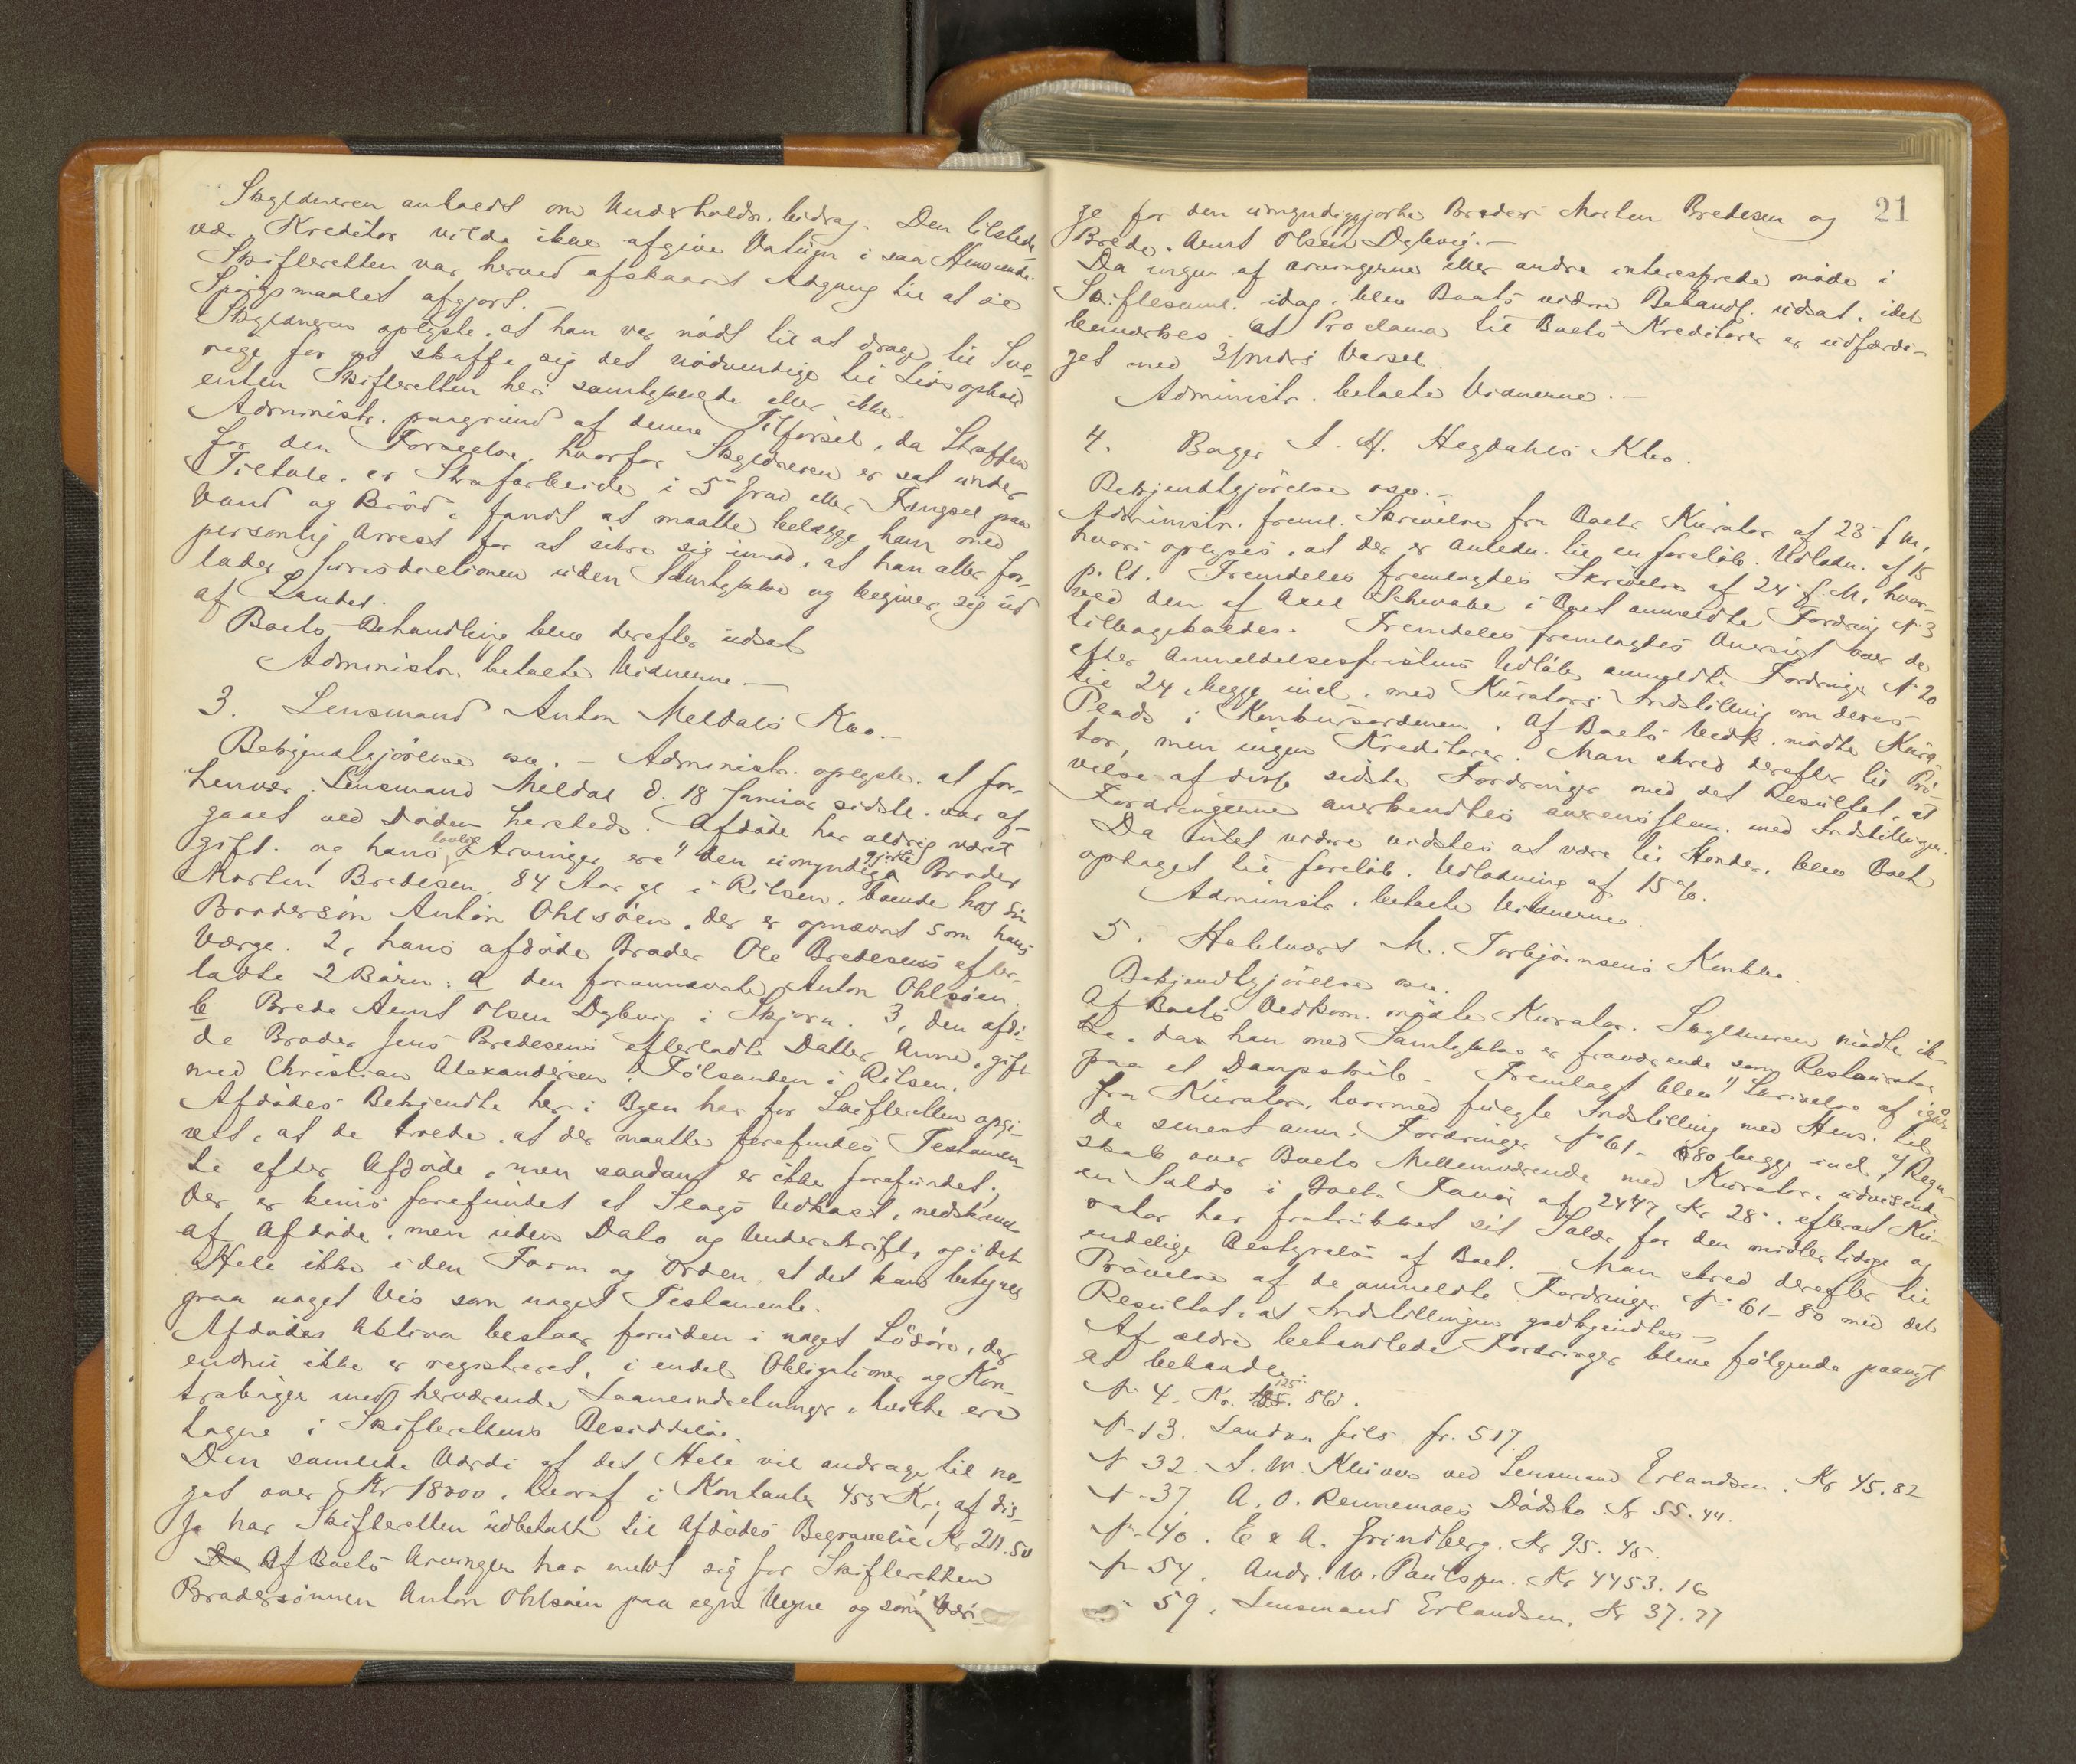 Skyldneren anholdt om Underholdn. bidrag. Den tilstede
vær. Kreditor vilde ikke afgive Votum i saa Henseende.
Skifteretten var herved afskaaret Adgang til at se
Spørgsmaalet afgjort. –
Skyldneren oplyste, at han var nødt til at drage til Sve-
rige for at skaffe sig det nødvendige til Livsophold
enten Skifteretten heri samtykkede eller ikke.
Administr. paagrund af denne Tilførsel, da Straffen
for den Forseelse, hvorfor Skyldneren er sat under
Tiltale, er Strafarbeide i 5te Grad eller Fængsel paa
Vand og Brød, fandt at maatte belægge ham med
personlig Arrest for at sikre sig imod, at han atter for-
lader Jurisdictionen uden Samtykke og begiver sig ud
af Landet.
Boets Behandling blev derefter udsat
Administr. betalte Vidnerne. –
3. Lensmand Anton Meldals Bo. –
Bekjendtgjørelse osv. – Administr. oplyste, at for-
henvær. Lensmand Meldal d. 18 Januar sidstl. var af-
gaaet ved Døden hersteds. Afdøde har aldrig været
gift og hans lovlige Arvinger ere 1/ den umyndiggjorte Broder
Morten Bredesen, 84 Aar gl i Rilsen, boende hos sin
Brodersøn Anton Ohlsøen, der er opnævnt som hans
Værge. 2, hans afdøde Broder Ole Bredesens efter-
ladte 2 Børn: a den forannævnte Anton Ohlsøen.
b Brede Aemt Olsen Dybvig i Skjørn. 3, den afdø-
de Broder Jens Bredesens efterladte Datter Anne, gift
med Christian Alexandersen Følsanden i Rilsen.
Afdødes Bekjendte her i Byen har for Skifteretten opgi-
vet, at de troede, at der maatte forefindes Testamen-
te efter Afdøde, men saadant er ikke forefundet;
der er kuns forefundet et Slags Udkast, nedskrevet
af Afdøde, men uden Dato og Underskrift, og i det
Hele ikke i den Form og Orden, at det kan betegnes
paa noget Vis som noget Testamente.
Afdødes Aktiva bestaar foruden i noget Løsøre, der
endnu ikke er registreret, i endel Obligationer og Kon-
trabøger med herværende Laaneindretninger, hvilke ere
tagne i Skifterettens Besiddelse.
Den samlede Værdi af det Hele vil andrage til no-
get over Kr 18000, hvoraf i Kontanter 455 Kr; af dis-
se har Skifteretten udbetalt til Afdødes Begravelse Kr 211.50
De Af Boets Arvinger har meldt sig for Skifteretten
Brodersønnen Anton Ohlsøen paa egne Vegne og som Vær-
21
ge for den umyndiggjorte Broder Morten Bredesen og
Brede Aemt Olsen Dybvig. –
Da ingen af Arvingerne eller andre interesserede møde i
Skiftesaml. idag, blev Boets videre Behandl. udsat, idet
bemærkes at Proclama til Boets Kreditorer er udfærdi-
get med 3 Mdrs Varsel.
Administr. betalte Vidnerne. –
4. Bager A. H. Hegdahls Kbo.
Bekjendtgjørelse osv. –
Administr. freml. Skrivelse fra Boets Kurator af 23 f M,
hvori oplyses, at der er Anledn. til en foreløb. Udlodn. af 15
p. Ct. Fremdeles fremlagdes Skrivelse af 24 f. M, hvor-
ved den af Axel Schwabe i Boet anmeldte Fordring No 3
tilbagekaldes. Fremdeles fremlagdes Oversigt over de
efter Anmeldelsesfristens Udløb anmeldte Fordringer No 20
til 24, begge incl., med Kurators Indstilling om deres
Plads i Konkursordenen. Af Boets Vedk. mødte Kura-
tor, men ingen Kreditorer. Man skred derefter til Prø-
velse af disse sidste Fordringer med det Resultat, at
Fordringerne anerkendtes overensstem. med Indstillingen.
Da intet videre vidstes at være til Hinder, blev Boet
optaget til foreløb. Udlodning af 15%.
Administr. betalte Vidnerne.
5. Halvard M. Torbjørnsens Konkbo.
Bekjendtgjørelse osv.
Af Boets Vedkom. mødte Kurator. Skyldneren mødte ik-
ke, da han med Samtykke er fraværende som Restauratør
paa et Dampskib. – Fremlagt blev 1/ Skrivelse af igaar
fra Kurator, hvormed fulgte Indstilling med Hens. til
de senest anm. Fordringer No 61 – 80 begge incl, 2/ Regn-
skab over Boets Mellemværende med Kurator, udvisende
en Saldo i Boets Favør af 2447 Kr 28 ø, efterat Ku-
rator har fratrukket sit Salær for den midlertidige og
endelige Bestyrelse af Boet. – Man skred derefter til
Prøvelse af de anmeldte Fordringer No 61 – 80 med det
Resultat, at Indstillingen godkjendtes –
Af ældre behandlede Fordringer bleve følgende paanyt
at behandle:
No 4. Kr. 125. 86.
No 13. Landva fils fr. 517.
No 32. S. W. Kluwer ved Lensmand Erlandsen. Kr 45.82
No 37. A. O. Rennemoes Dødsbo Kr 55.44.
No 40. E & A. Grindberg. Kr 95.45.
No 54. Andr. W. Paulsen. Kr 4453.16
59. Lensmand Erlandsen. Kr 37.77